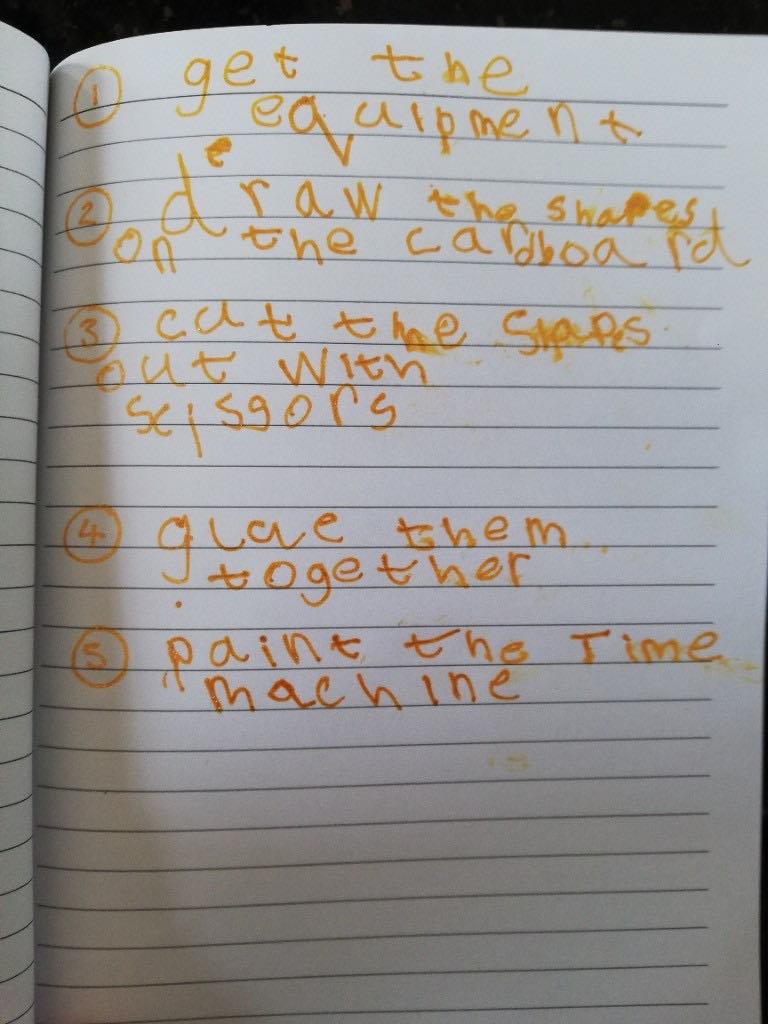 ① get the
equipment
② draw the shapes
on the cardboard
③ cut the shapes
out with
scissors
④ glue them
together
⑤ paint the Time
machine